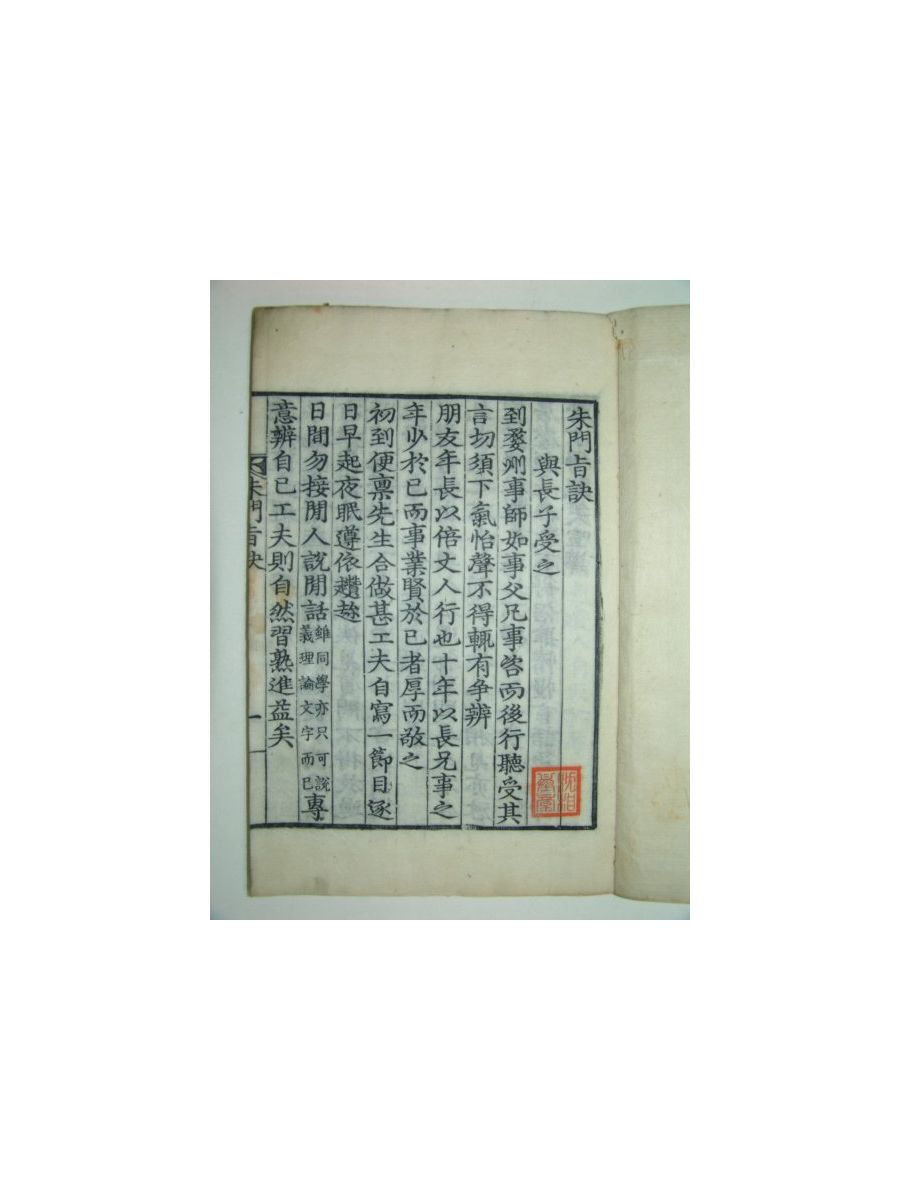 朱門旨訣
與長子受之
到婺州事師如事父凡事咨而後行聽受其
言切須下氣怡聲不得輒有争辨
朋友年長以倍丈人行也十年以長兄事之
年少於己而事業賢於己者厚而敬之
初到便禀先生合做甚工夫自寫一節目逐
日早起夜眠遵依趲趂
日間勿接閒人說閒話雖同學亦只可說義理論文字而已專
意辨自己工夫則自然習熟進益矣
朱門旨訣
一